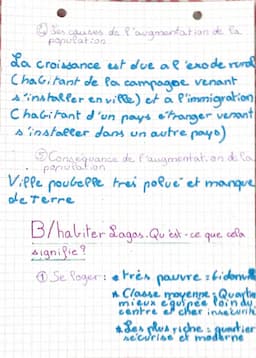 ② Les causes de l'augmentation de la
population
La croissance est due a l'exode rural
(habitant de la campagne venant
s'installer en ville) et a l'immigration
(habitant d'un pays etranger venant
s'installer dans un autre pays)
③ Consequance de l'augmentation de la
population
Ville poubelle tres polué et manque
de terre
B/habiter Lagos. Qu'est-ce que cela
signifie?
① Se loger: • très pauvre: bidonville
• Classe moyenne: Quartier
mieux équipée loin du
centre et cher insecurité
• Les plus riche: quartier
sécurisé et moderne